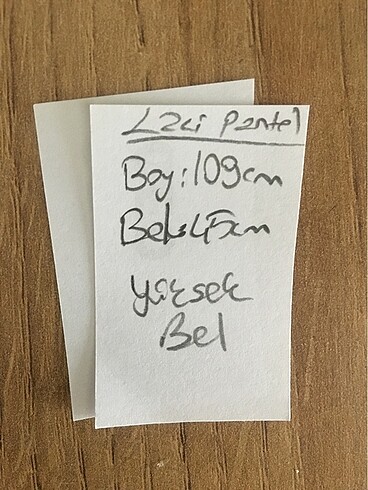 Laci Pantol
Boy: 109cm
Bel: 45cm
Yüksek
Bel